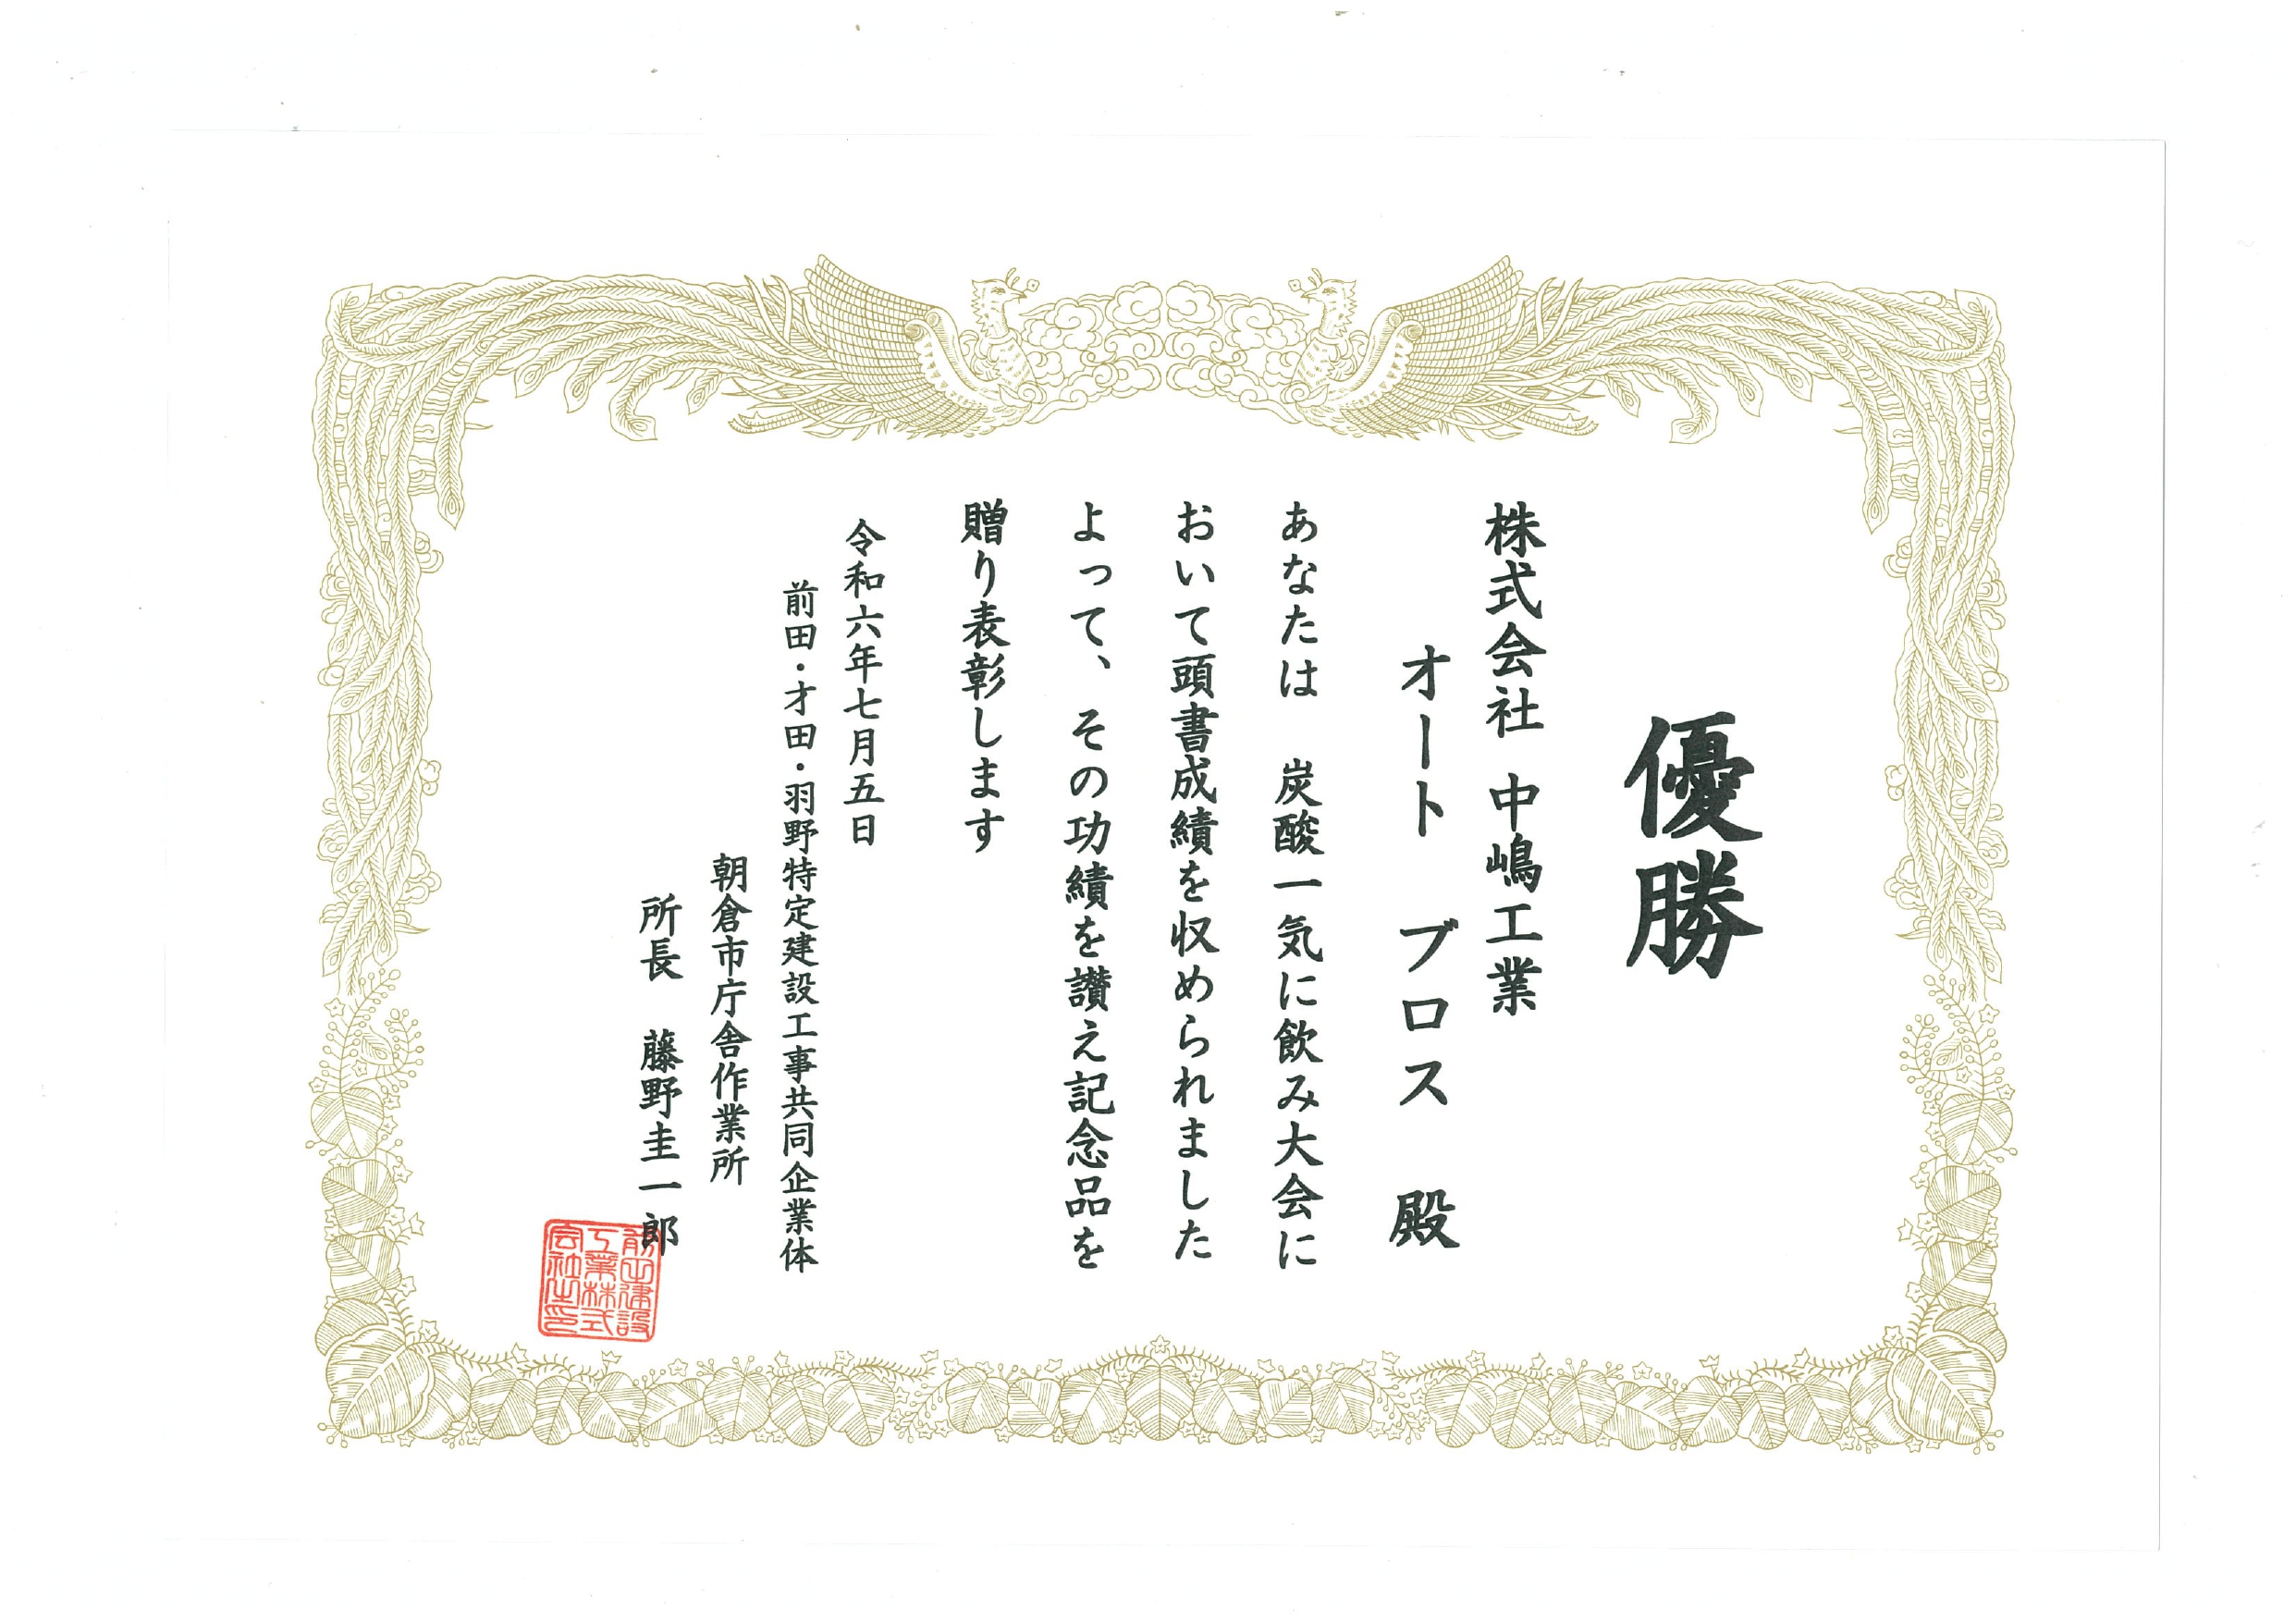 優勝
株式会社 中嶋工業
オート ブロス 殿
あなたは 炭酸一気に飲み大会に
おいて頭書成績を収められました
よって、その功績を讃え記念品を
贈り表彰します
令和六年七月五日
前田・才田・羽野特定建設工事共同企業体
朝倉市庁舎作業所
所長 藤野圭一郎
前田建設
工業株式
会社之印